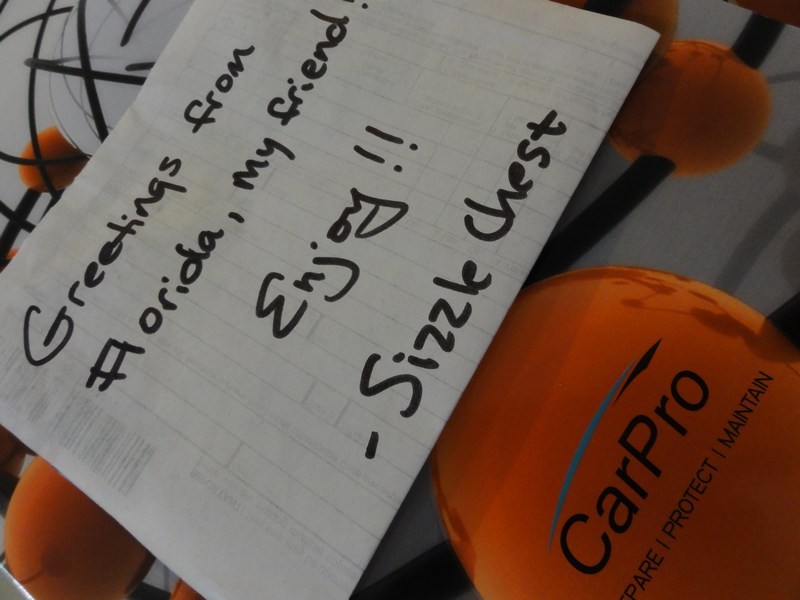 Greetings from
Florida, my friend!
Enjoy!!
- Sizzle Chest
CarPro
EPARE | PROTECT | MAINTAIN